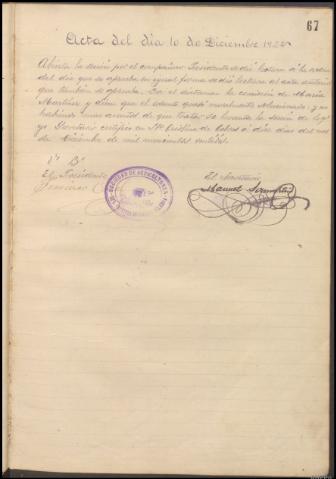 67
Acta del dia 10 de Diciembre 192
Abierta la sesión por el compañero Presidente se dió lectura á la orden
del dia que se aprueba en igual forma se dió lectura al acta anterior
que también se aprueba. Da el dictamen la comisión de María
Martínez y dicen que el asunto quedó moralmente solucionado y no
habiendo mas asuntos de que tratar se levanta la sesión de lo que
yo Secretario certifico en Mª Cristina de Cobre á diez dias del mes
de Diciembre de mil novecientos
Vº Bº
El Presidente
El Secretario
Manuel
SOCIEDAD DE AGRICULTORES